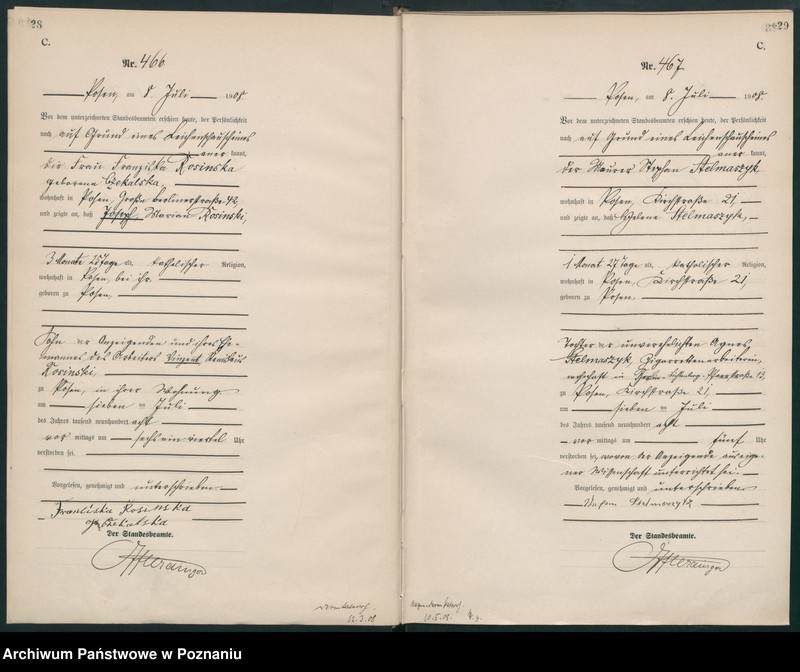 28
C.
Nr. 466
Posen, am 8. Juli 1908.
Vor dem unterzeichneten Standesbeamten erschien heute, der Persönlichkeit
nach auf Grund eines Leichenschauscheines
kannt,
die Frau Franziska Kosinska
geborene Czekalska,
wohnhaft in Posen, Große Berlinerstraße 42,
und zeigte an, daß Joseph Marian Kosinski,
3 Monate 15 Tage alt, katholischer Religion,
wohnhaft in Posen, bei ihr.
geboren zu Posen,
Sohn der Anzeigenden und ihres Ehe-
mannes des Arbeiters Vinzent
Kosinski,
zu Posen, in ihrer Wohnung
am sieben ten Juli
des Jahres tausend neunhundert acht
vor mittags um sechs ein viertel Uhr
verstorben sei.
Vorgelesen, genehmigt und unterschrieben
Franciska Kosinska
Czekalska
Der Standesbeamte.
29
C.
Nr. 467
Posen, am 8. Juli 1908.
Vor dem unterzeichneten Standesbeamten erschien heute, der Persönlichkeit
nach auf Grund eines Leichenschauscheines
kannt,
der Maurer Stephan Stelmaszyk,
wohnhaft in Posen, Kirchstraße 21,
und zeigte an, daß Helene Stelmaszyk,
1 Monat 27 Tage alt, katholischer Religion,
wohnhaft in Posen, Kirchstraße 21,
geboren zu Posen.
Tochter der unverehelichten Agnes
Stelmaszyk, Zigarettenarbeiterin,
wohnhaft in
zu Posen, Kirchstraße 21,
am sieben ten Juli
des Jahres tausend neunhundert acht
vor mittags um fünf Uhr
verstorben sei, wovon der Anzeigende aus eige-
ner Wissenschaft unterrichtet sei.
Vorgelesen, genehmigt und unterschrieben
Der Standesbeamte.
Archiwum Państwowe w Poznaniu